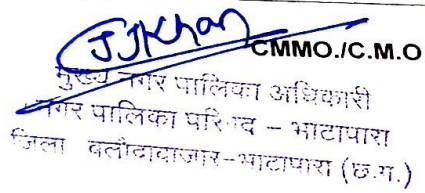 JJKhan
CMMO./C.M.O
मुख्य नगर पालिका अधिकारी
नगर पालिका परिषद - भाटापारा
जिला बलौदाबाजार-भाटापारा (छ.ग.)